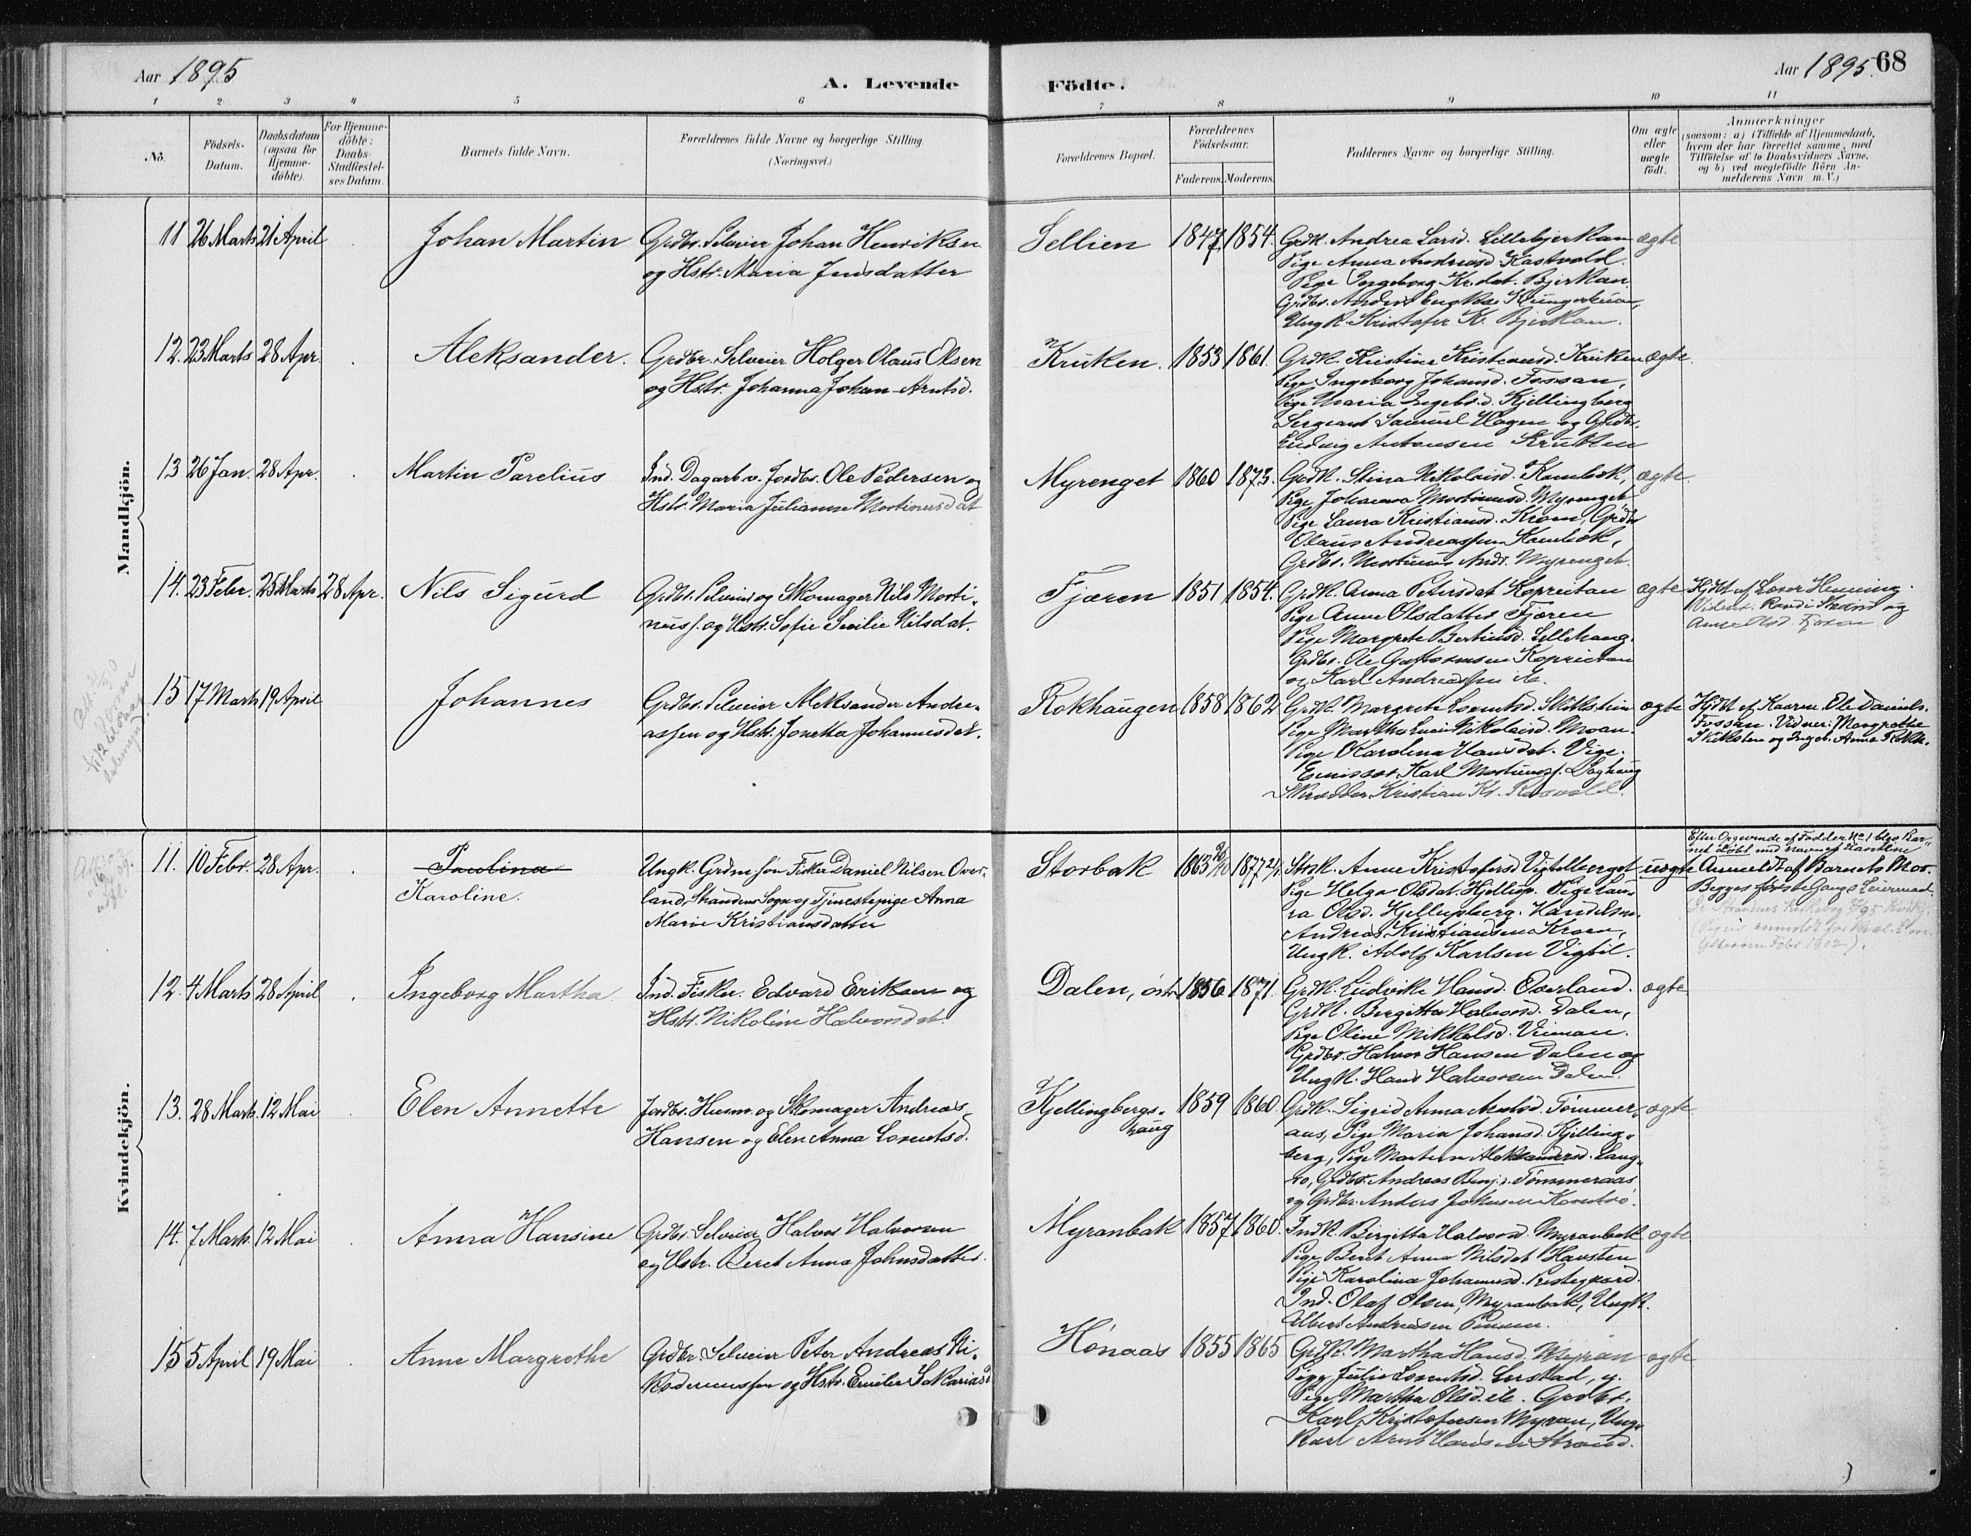 Aar 1895
A. Levende
Födte.
Aar 1895.
68
1 2 3 4 5 6 7 8 9 10 11
No.
Födsels-
Datum.
Daabsdatum
(ogsaa för
Hjemme-
döbte).
For Hjemme-
döbte:
Daabs-
Stadfæstel-
ses Datum.
Barnets fulde Navn.
Forældrenes fulde Navne og borgerlige Stilling
(Næringsvei.)
Forældrenes Bopæl.
Forældrenes
Födselsaar.
Faderens. Moderens.
Faddernes Navne og borgerlige Stilling.
Om ægte
eller
uægte
födt.
Anmærkninger
(saasom: a) i Tilfælde af Hjemmedaab,
hvem der har forrettet samme, med
Tilföielse af to Daabsvidners Navne.
og b) ved uægtefödte Börn An-
melderens Navn m.V.)
Mandkjön.
11 26 Marts 21 April
Johan Martin
Grdbr. Selveier Johan Henriksen
og Hstr. Maria Jensdatter
Sellien 1847 1854.
Grdk. Andrea Larsd. Lillebjerkan
Pige Anna Andreasd.
Pige Ingeborg Kr.dat. Bjerkan
Ungk. Kristofer K. Bjerkan.
ægte
12. 23 Marts 28 Apr.
Aleksander.
Grdbr. Selveier Holger Olaus Olsen
og Hstr. Johanna Johan Arntsd.
Kruken. 1853 1861.
Grdk. Kristine Kristensd. Kruken
Pige Ingeborg Johansd. Fossan,
Pige Maria Ingebr.d. Kjellingberg
Sergeant Samuel Hagen og Grdbr.
Ludvig Antonsen Kruken
ægte.
13 26 Jan. 28 Apr.
Martin Parelius
Ind. Dagarb. v. Jordbr. Ole Pedersen og
Hstr. Maria Julianne Mortinusdat
Myrenget 1860 1873.
Grdk. Stina Nikolaid.
Pige Johanna Mortinusd. Myrenget
Pige Laura Kristiansd. Kroen, Grdbr
Olaus Andreassen
Grdbr. Mortinus Andr. Myrenget.
ægte.
14. 23 Febr. 25 Marts 28 Apr.
Nils Sigurd
Grdbr. Selveier og Skomager Nils Morti-
nuss. og Hstr. Sofie Secilie Nilsdat.
Fjæren 1851 1854.
Grdk. Anna Petersdat Kopreitan
Pige Anne Olsdatter Fjæren
Pige Margrete Bertinsd. Lillehaug
Grdbr. Ole Kopreitan
og Karl Andreassen
ægte
Hjdbt af Lærer Henning.
Vidner: Randi og
Anne Olsd. Fjæren
15 17 Marts 19 April
Johannes
Grdbr. Selveier Aleksander Andre-
assen og Hstr. Jonetta Johannesdat.
Rokhaugen 1858 1862
Grdk. Margrete Lorentsd.
Pige Martha Nikolaisd. Moan.
Pige Karolina Hansdat. Vige.
Emissær Karl Mortinuss.
Skrædder Kristian Kr.
ægte
Hjdbt af Ole Daniels.
Fossan. Vidner: Margrethe
og Anna
Kvindekjön.
11. 10 Febr. 28 Apr.
Paulina
Karoline.
Ungk. Grdm. søn Fisker Daniel Nilsen Over-
land, Sogn og Tjenestepige Anna
Marie Kristiansdatter
Storbak 1863 1877
Anne Kristofersd Vigtilberget
Pige Helga Olsdat. Hjellup. Pige Lau-
ra Olsd. Hjellupberg. Handelsm.
Andreas Kristiansen Kroen,
Ungk. Adolf Karlsen Vigtil.
uægte
Efter Opgivende af Fadder No 1 blev Bar-
net døbt med Navnet Karoline.
Anmeldt af Barnets Mor.
Begges første Gangs Leiermaal.
12. 4 Marts 28 April
Ingeborg Martha
Ind. Fisker. Edvard Eriksen og
Hstr. Nikoline Halvorsdat.
Dalen, 1856 1871.
Grdk. Ludvike Hansd. Overland.
Grdk. Birgitta Halvorsd. Dalen,
Pige Oline Mikkelsd.
Grdbr. Halvor Hansen Dalen og
Ungk. Hans Halvorsen Dalen.
ægte
13. 28 Marts 12 Mai
Elen Annette
Jordbr. Husm. og Skomager Andreas
Hansen og Elen Anna Lorentsd.
Kjellingbergs-
haug
1859 1860
Grdk. Sigrid Anna Arntsd. Tömmer-
aas, Pige Maria Johansd. Kjelling-
berg, Pige Aleksandersd. Lang-
Grdbr. Andreas Benj. Tömmeraas
og Grdbr. Anders
ægte
14. 7 Marts. 12 Mai
Anna Hansine
Grdbr. Selveier Halvor Halvorsen
og Hstr. Beret Anna Johnsdatter.
Myranbak 1857 1860.
Indk. Birgitta Halvorsd. Myranbak
Pige Beret Anna Nilsdat Havsten
Pige Karolina Johannesd. Prestegaard.
Ind. Olaf Olsen, Myranbak, Ungk.
Albert Andreasen
ægte
15 5 April 19 Mai
Anne Margrethe
Grdbr. Selveier Peter Andreas Ni-
kodemussen og Hstr. Emilie Sakariasd
Hönaas 1855 1865
Grdk. Martha Hansd. Myran
Pige Julie Lorentsd.
Pige Martha Olsd. Grdbr.
Karl Kristofersen Myran, Ungk.
Karl Arnt Hansen Strand.
ægte